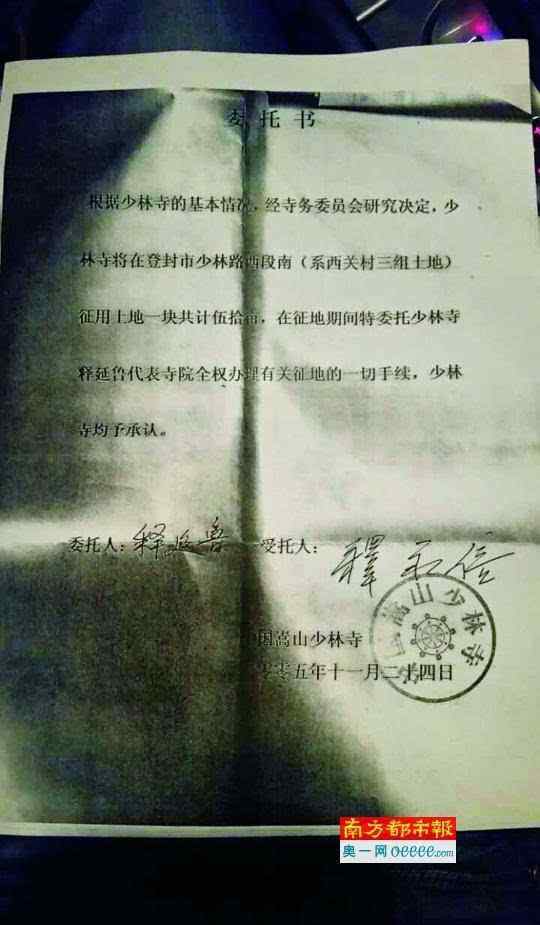 委托书
根据少林寺的基本情况，经寺务委员会研究决定，少
林寺将在登封市少林路西段南（系西关村三组土地）
征用土地一块共计伍拾亩，在征地期间特委托少林寺
释延鲁代表寺院全权办理有关征地的一切手续，少林
寺均予承认。
委托人：释延鲁 受托人：釋永信
国嵩山少林寺
零五年十一月二十四日
嵩山少林寺
南方都市報
奥一网 oeeee.com